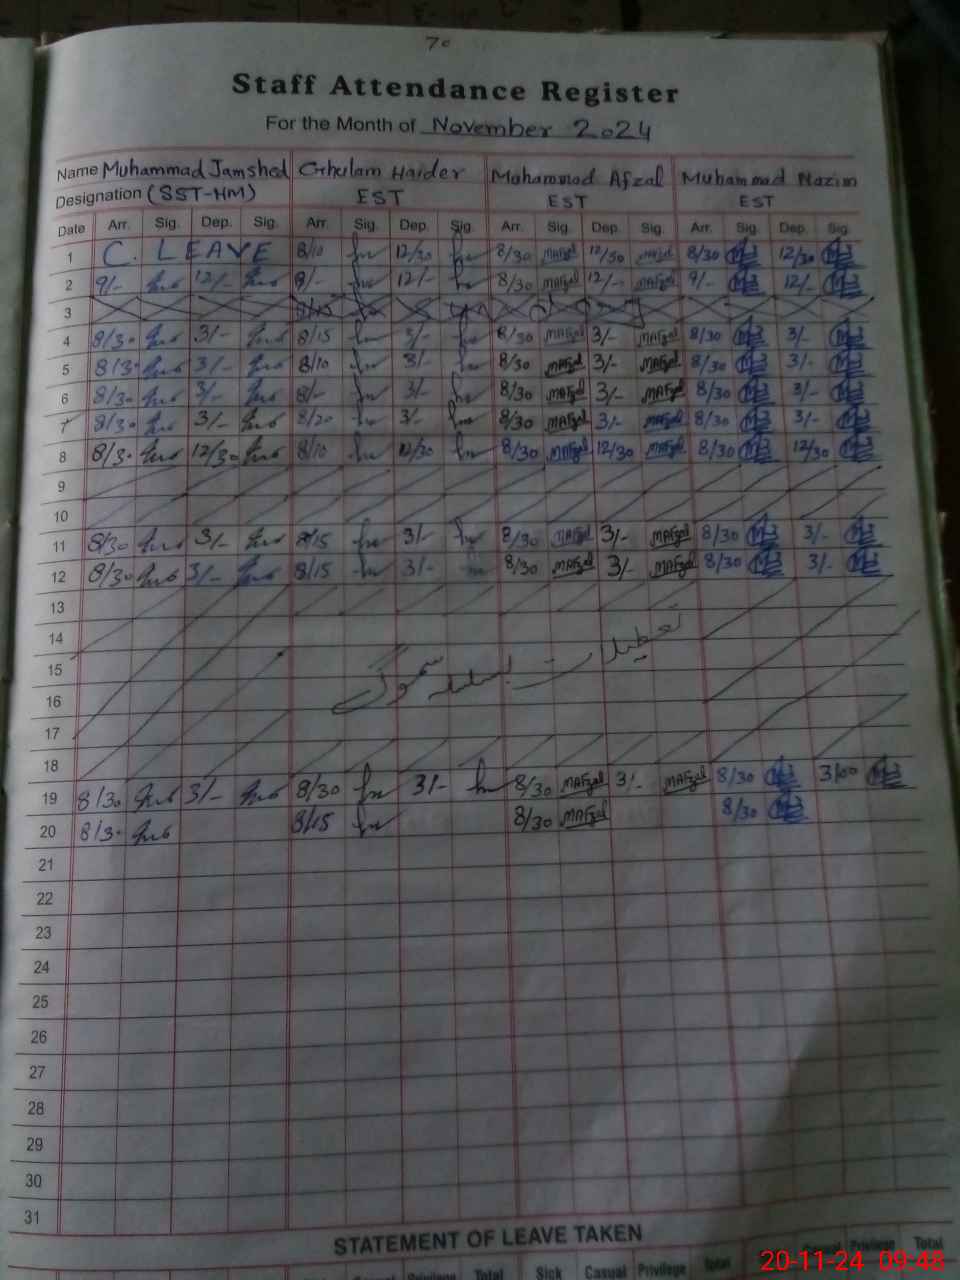 70
Staff Attendance Register
For the Month of November 2024
Name Muhammad Jamshed Ghulam Haider Mohammad Afzal Muhammad Nazim
Designation (SST-HM) EST EST EST
Date Arr. Sig. Dep. Sig. Arr. Sig. Dep. Sig. Arr. Sig. Dep. Sig. Arr. Sig. Dep. Sig.
1 C. LEAVE 8/10 12/30 8/30 MAfzal 12/30 MAfzal 8/30 12/30
2 9/- 12/- 8/- 12/- 8/30 MAfzal 12/- MAfzal 9/- 12/-
3
4 8/30 3/- 8/15 3/- 8/30 MAfzal 3/- MAfzal 8/30 3/-
5 8/30 3/- 8/10 3/- 8/30 MAfzal 3/- MAfzal 8/30 3/-
6 8/30 3/- 8/- 3/- 8/30 MAfzal 3/- MAfzal 8/30 3/-
7 8/30 3/- 8/20 3/- 8/30 MAfzal 3/- MAfzal 8/30 3/-
8 8/30 12/30 8/10 12/30 8/30 MAfzal 12/30 MAfzal 8/30 12/30
9
10
11 8/30 3/- 8/15 3/- 8/30 MAfzal 3/- MAfzal 8/30 3/-
12 8/30 3/- 8/15 3/- 8/30 MAfzal 3/- MAfzal 8/30 3/-
13
14
تعطیلات بسلسلہ سموگ
15
16
17
18
19 8/30 3/- 8/30 3/- 8/30 MAfzal 3/- MAfzal 8/30 3/00
20 8/30 8/15 8/30 MAfzal 8/30
21
22
23
24
25
26
27
28
29
30
31
STATEMENT OF LEAVE TAKEN
Casual Privilege Total Sick Casual Privilege Total Casual Privilege Total
20-11-24 09:48